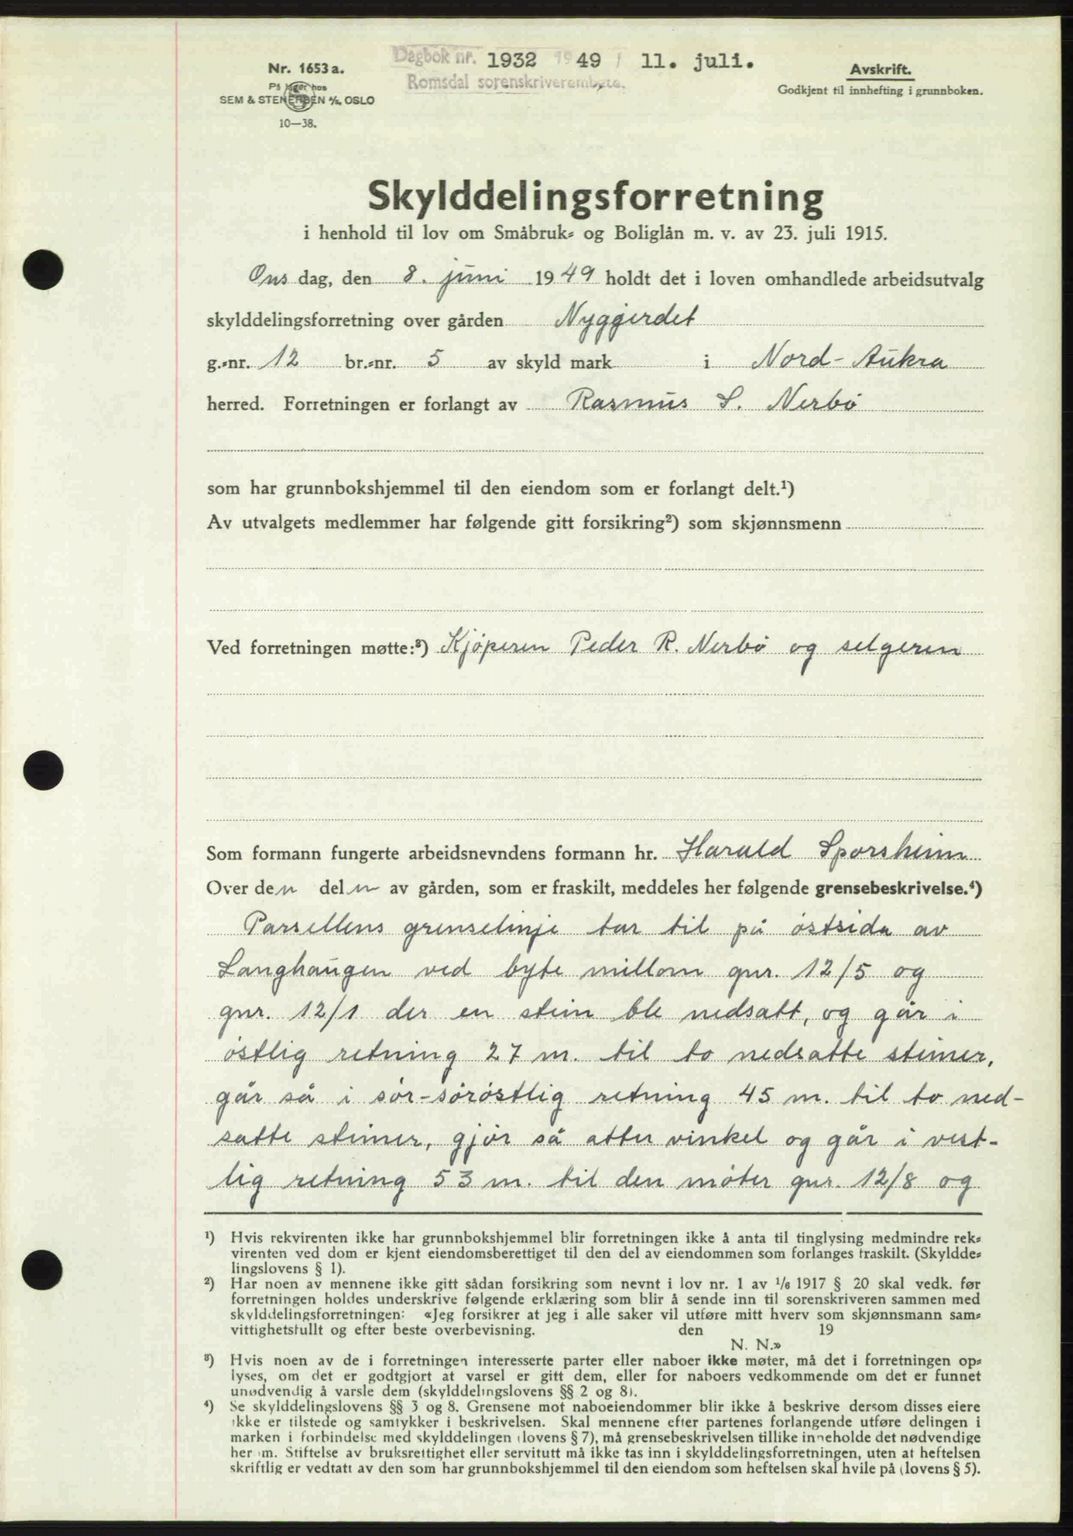 Dagbok nr. 1932 1949 11. juli.
Romsdal sorenskriverembete.
Nr. 1653 a.
På lager hos
SEM & STENERSEN A/S, OSLO
10—38.
Avskrift.
Godkjent til innhefting i grunnboken.
Skylddelingsforretning
i henhold til lov om Småbruk- og Boliglån m. v. av 23. juli 1915.
Ons dag, den 8. juni 1949 holdt det i loven omhandlede arbeidsutvalg
skylddelingsforretning over gården Nyggjerdet
g.-nr. 12 br.-nr. 5 av skyld mark i Nord-Aukra
herred. Forretningen er forlangt av Rasmus S. Nerbö
som har grunnbokshjemmel til den eiendom som er forlangt delt.¹)
Av utvalgets medlemmer har følgende gitt forsikring²) som skjønnsmenn
Ved forretningen møtte:³) Kjöperen Peder R. Nerbö og selgeren
Som formann fungerte arbeidsnevndens formann hr. Harald Sporsheim
Over den delen av gården, som er fraskilt, meddeles her følgende grensebeskrivelse.⁴)
Parsellens grenselinje tar til på östsida av
Langhaugen ved byte millom gnr. 12/5 og
gnr. 12/1 der en stein ble nedsatt, og går i
östlig retning 27 m. til to nedsatte steiner,
går så i sör-söröstlig retning 45 m. til to ned-
satte steiner, gjör så atter vinkel og går i vest-
lig retning 53 m. til den möter gnr. 12/8 og
¹) Hvis rekvirenten ikke har grunnbokshjemmel blir forretningen ikke å anta til tinglysing medmindre rek-
virenten ved dom er kjent eiendomsberettiget til den del av eiendommen som forlanges fraskilt. (Skyldde-
lingslovens § 1).
²) Har noen av mennene ikke gitt sådan forsikring som nevnt i lov nr. 1 av 1/6 1917 § 20 skal vedk. før
forretningen holdes underskrive følgende erklæring som blir å sende inn til sorenskriveren sammen med
skylddelingsforretningen: «Jeg forsikrer at jeg i alle saker vil utføre mitt hverv som skjønnsmann sam-
vittighetsfullt og efter beste overbevisning. den 19
N. N.»
³) Hvis noen av de i forretningen interesserte parter eller naboer ikke møter, må det i forretningen op-
lyses, om det er godtgjort at varsel er gitt dem, eller for naboers vedkommende om det er funnet
unødvendig å varsle dem (skylddelingslovens §§ 2 og 8).
⁴) Se skylddelingslovens §§ 3 og 8. Grensene mot naboeiendommer blir ikke å beskrive dersom disses eiere
ikke er tilstede og samtykker i beskrivelsen. Skal mennene efter partenes forlangende utføre delingen i
marken i forbindelse med skylddelingen (lovens § 7), må grensebeskrivelsen tillike inneholde det nødvendige
her om. Stiftelse av bruksrettighet eller servitutt må ikke tas inn i skylddelingsforretningen, uten at heftelsen
skriftlig er vedtatt av den som har grunnbokshjemmel til den eiendom som heftelsen skal hvile på (lovens § 5).